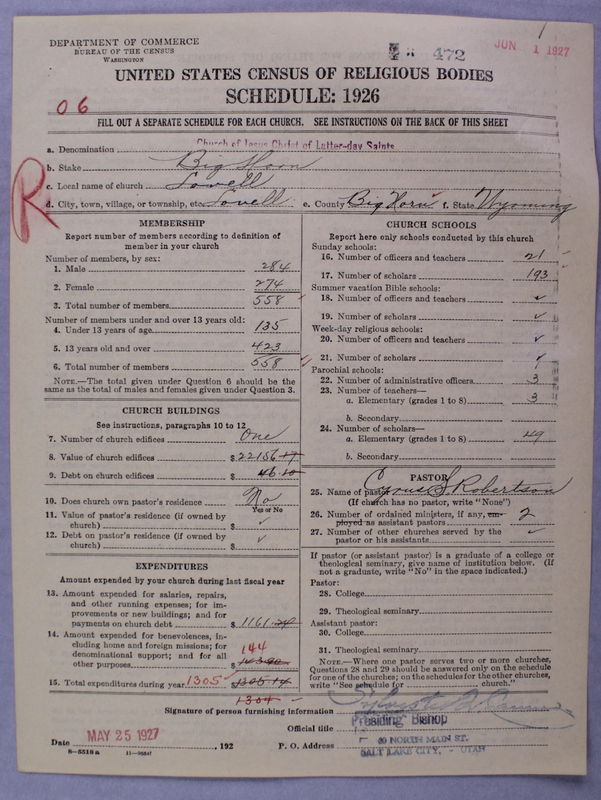 DEPARTMENT OF COMMERCE
BUREAU OF THE CENSUS
WASHINGTON
472
JUN 1 1927
UNITED STATES CENSUS OF RELIGIOUS BODIES
SCHEDULE: 1926
06
FILL OUT A SEPARATE SCHEDULE FOR EACH CHURCH. SEE INSTRUCTIONS ON THE BACK OF THIS SHEET
a. Denomination Church of Jesus Christ of Latter-day Saints
b. Stake Big Horn
c. Local name of church Lovell
d. City, town, village, or township, etc. Lovell e. County Big Horn f. State Wyoming
R
MEMBERSHIP
Report number of members according to definition of
member in your church
Number of members, by sex:
1. Male 284
2. Female 274
3. Total number of members 558
Number of members under and over 13 years old:
4. Under 13 years of age 135
5. 13 years old and over 423
6. Total number of members 558
NOTE.—The total given under Question 6 should be the
same as the total of males and females given under Question 3.
CHURCH BUILDINGS
See instructions, paragraphs 10 to 12
7. Number of church edifices One
8. Value of church edifices $ 22156 17
9. Debt on church edifices $ 46 10
10. Does church own pastor's residence No
Yes or No
11. Value of pastor's residence (if owned by
church) $ ✓
12. Debt on pastor's residence (if owned by
church) $ ✓
EXPENDITURES
Amount expended by your church during last fiscal year
13. Amount expended for salaries, repairs,
and other running expenses; for im-
provements or new buildings; and for
payments on church debt $ 1161 24
14. Amount expended for benevolences, in-
cluding home and foreign missions; for
denominational support; and for all
other purposes $ 144
15. Total expenditures during year 1305 $ 1305 14
1304
CHURCH SCHOOLS
Report here only schools conducted by this church
Sunday schools:
16. Number of officers and teachers 21
17. Number of scholars 193
Summer vacation Bible schools:
18. Number of officers and teachers ✓
19. Number of scholars ✓
Week-day religious schools:
20. Number of officers and teachers ✓
21. Number of scholars ✓
Parochial schools:
22. Number of administrative officers 3
23. Number of teachers—
a. Elementary (grades 1 to 8) 3
b. Secondary
24. Number of scholars—
a. Elementary (grades 1 to 8) 49
b. Secondary
PASTOR
25. Name of pastor Cyrus S. Robertson
(If church has no pastor, write "None")
26. Number of ordained ministers, if any, em-
ployed as assistant pastors 2
27. Number of other churches served by the
pastor or his assistants ✓
If pastor (or assistant pastor) is a graduate of a college or
theological seminary, give name of institution below. (If
not a graduate, write "No" in the space indicated.)
Pastor:
28. College
29. Theological seminary
Assistant pastor:
30. College
31. Theological seminary
NOTE.—Where one pastor serves two or more churches,
Questions 28 and 29 should be answered only on the schedule
for one of the churches; on the schedules for the other churches,
write "See schedule for church."
Signature of person furnishing information
Official title Presiding Bishop
Date MAY 25 1927, 192 P. O. Address 40 NORTH MAIN ST.
SALT LAKE CITY, - UTAH
8—5518a